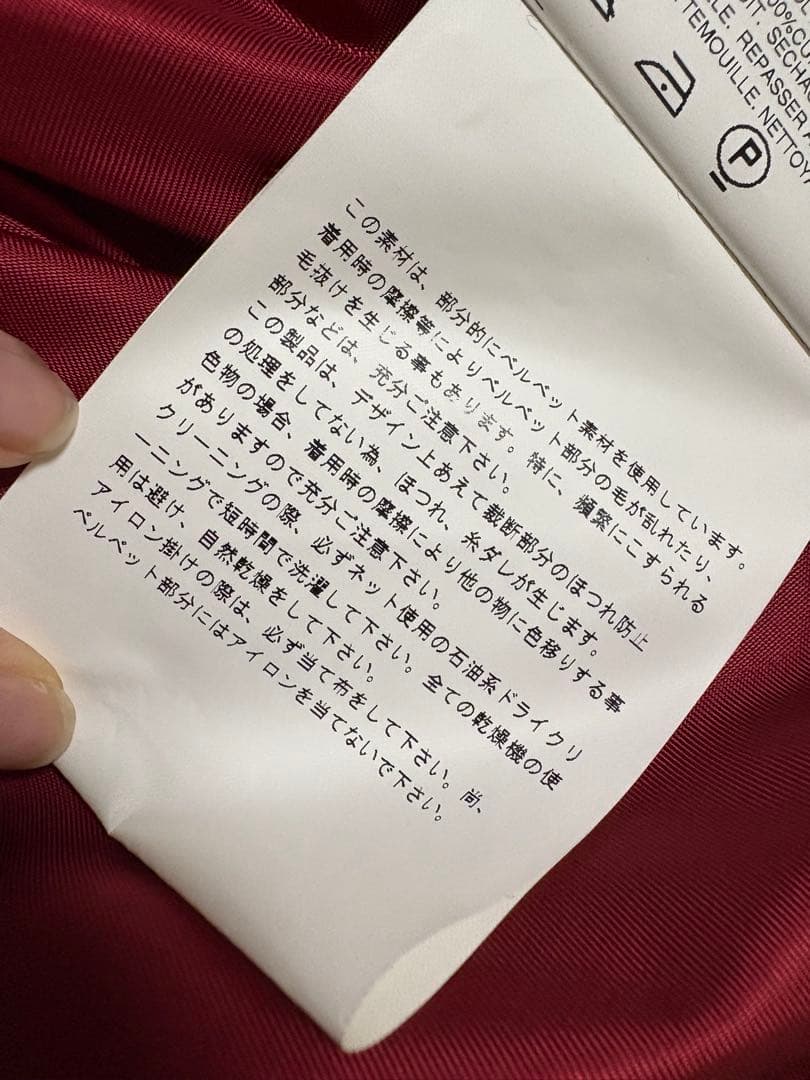 この素材は、部分的にベルベット素材を使用しています。
着用時の摩擦等によりベルベット部分の毛が乱れたり、
毛抜けを生じる事もあります。特に、頻繁にこすられる
部分などは、充分ご注意下さい。
この製品は、デザイン上あえて裁断部分のほつれ防止
の処理をしてない為、ほつれ、糸ダレが生じます。
色物の場合、着用時の摩擦により他の物に色移りする事
がありますので充分ご注意下さい。
クリーニングの際、必ずネット使用の石油系ドライクリ
ーニングで短時間で洗濯して下さい。全ての乾燥機の使
用は避け、自然乾燥をして下さい。
アイロン掛けの際は、必ず当て布をして下さい。尚、
ベルベット部分にはアイロンを当てないで下さい。
00%CU
IT. SECHA
LE. REPASSER A
TTEMOUILLE. NETTOYA
P